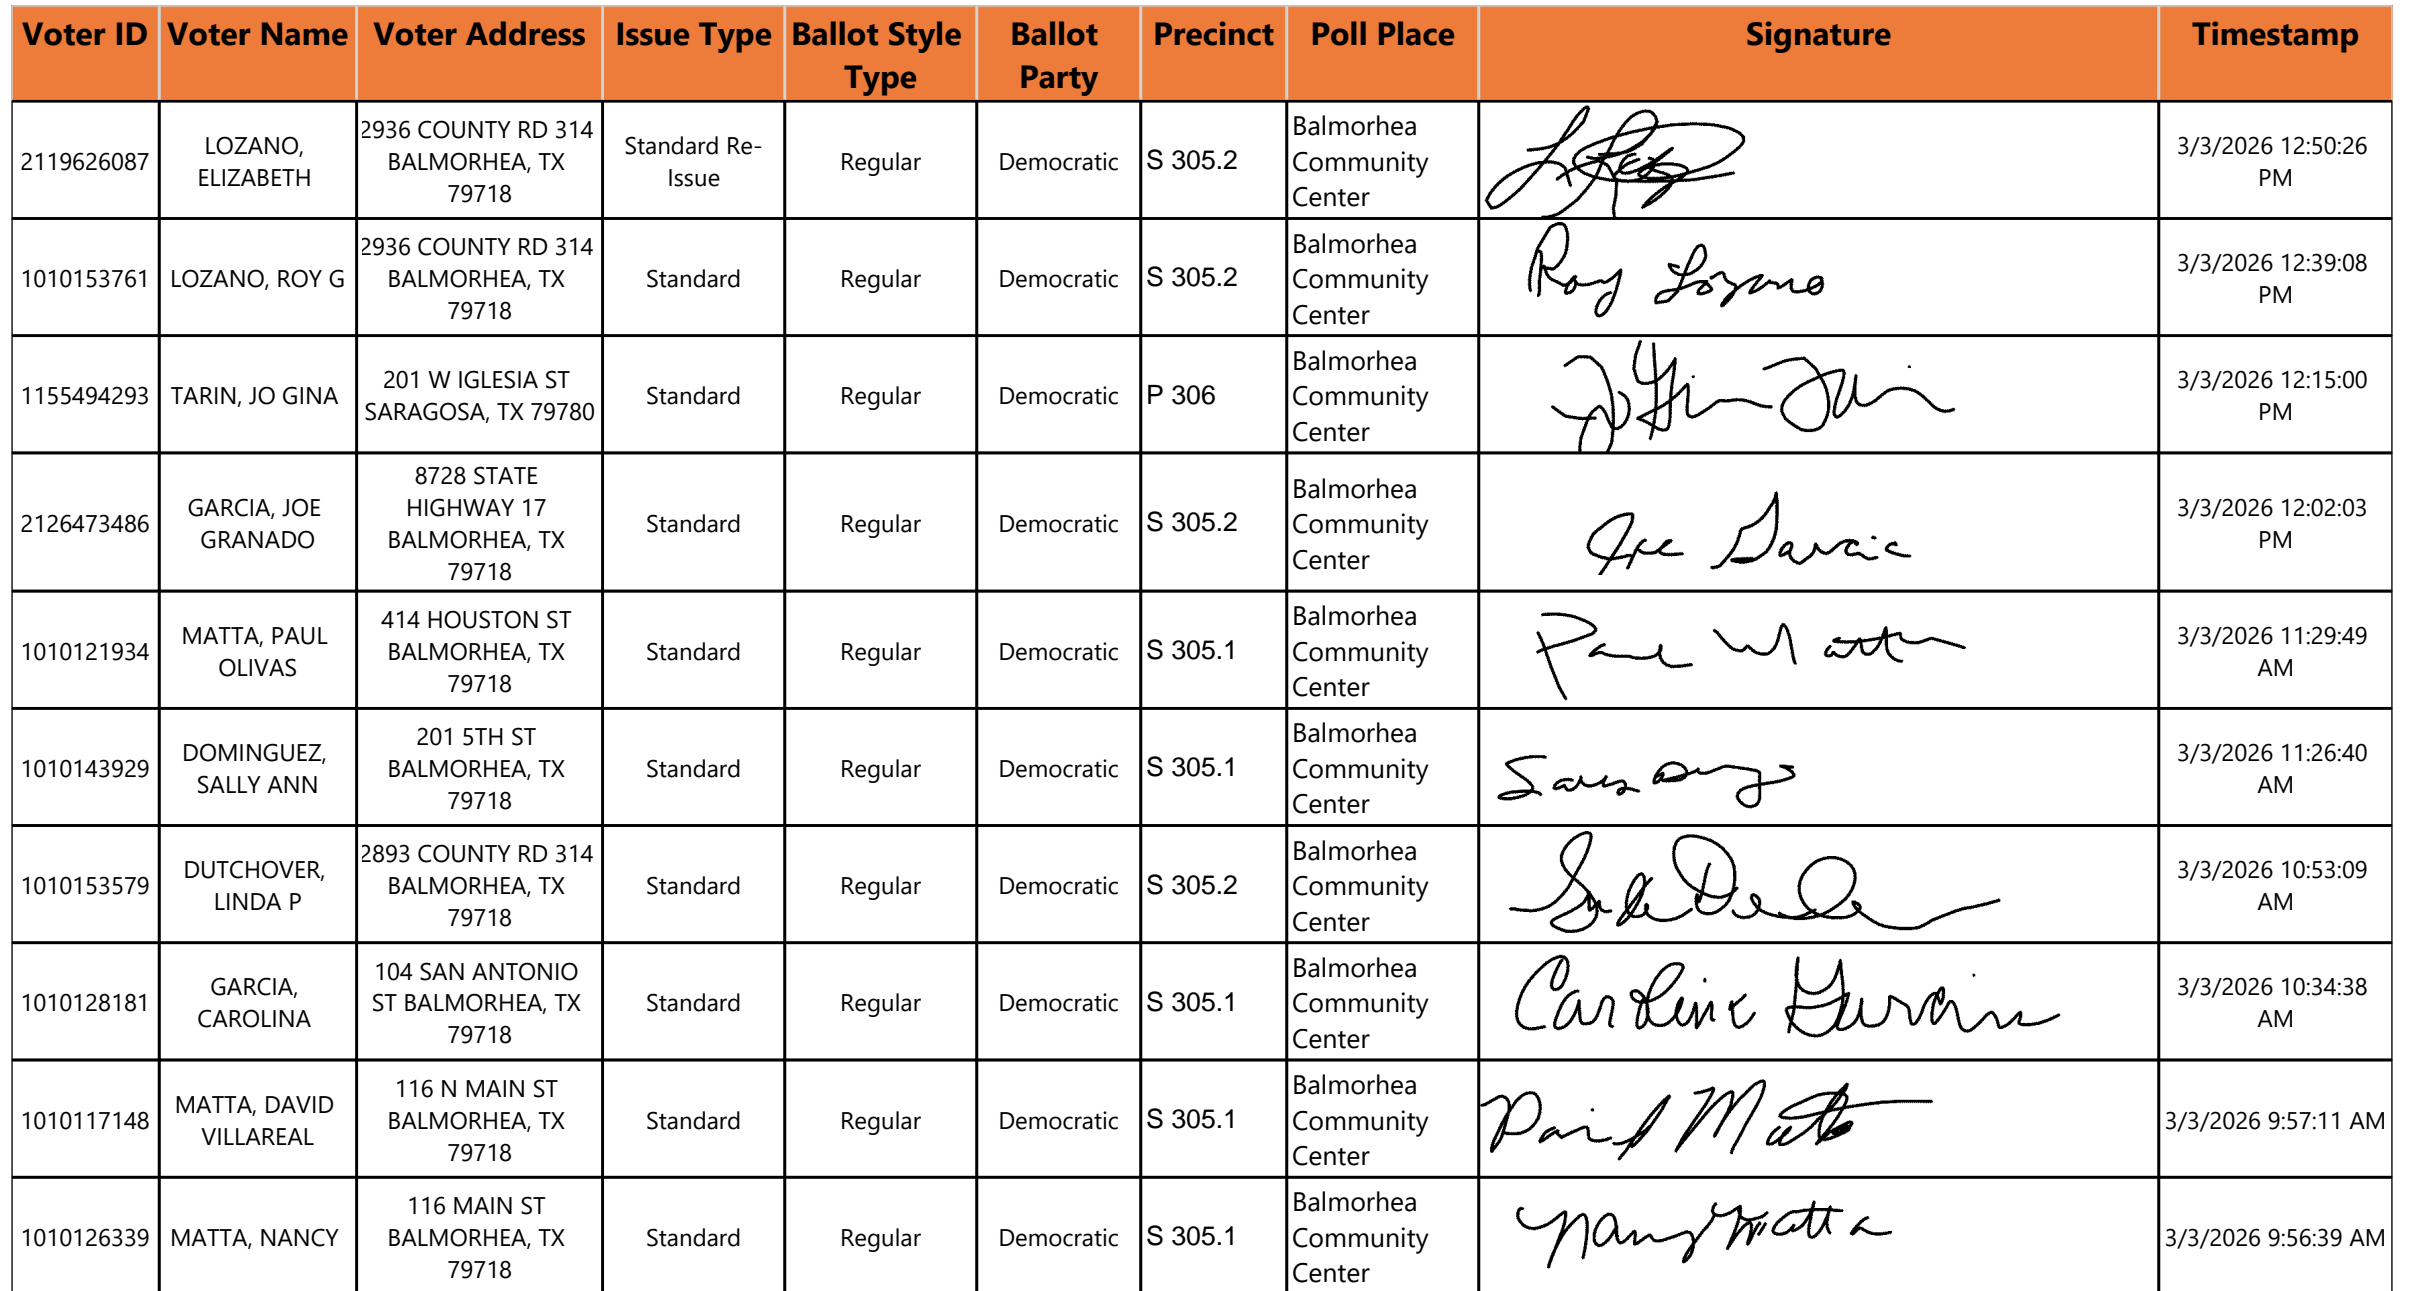 Voter ID Voter Name Voter Address Issue Type Ballot Style Type Ballot Party Precinct Poll Place Signature Timestamp
2119626087 LOZANO, ELIZABETH 2936 COUNTY RD 314 BALMORHEA, TX 79718 Standard Re-Issue Regular Democratic S 305.2 Balmorhea Community Center 3/3/2026 12:50:26 PM
1010153761 LOZANO, ROY G 2936 COUNTY RD 314 BALMORHEA, TX 79718 Standard Regular Democratic S 305.2 Balmorhea Community Center Roy Lozano 3/3/2026 12:39:08 PM
1155494293 TARIN, JO GINA 201 W IGLESIA ST SARAGOSA, TX 79780 Standard Regular Democratic P 306 Balmorhea Community Center 3/3/2026 12:15:00 PM
2126473486 GARCIA, JOE GRANADO 8728 STATE HIGHWAY 17 BALMORHEA, TX 79718 Standard Regular Democratic S 305.2 Balmorhea Community Center Joe Garcia 3/3/2026 12:02:03 PM
1010121934 MATTA, PAUL OLIVAS 414 HOUSTON ST BALMORHEA, TX 79718 Standard Regular Democratic S 305.1 Balmorhea Community Center Paul Matta 3/3/2026 11:29:49 AM
1010143929 DOMINGUEZ, SALLY ANN 201 5TH ST BALMORHEA, TX 79718 Standard Regular Democratic S 305.1 Balmorhea Community Center 3/3/2026 11:26:40 AM
1010153579 DUTCHOVER, LINDA P 2893 COUNTY RD 314 BALMORHEA, TX 79718 Standard Regular Democratic S 305.2 Balmorhea Community Center 3/3/2026 10:53:09 AM
1010128181 GARCIA, CAROLINA 104 SAN ANTONIO ST BALMORHEA, TX 79718 Standard Regular Democratic S 305.1 Balmorhea Community Center Caroline Garcia 3/3/2026 10:34:38 AM
1010117148 MATTA, DAVID VILLAREAL 116 N MAIN ST BALMORHEA, TX 79718 Standard Regular Democratic S 305.1 Balmorhea Community Center David Matta 3/3/2026 9:57:11 AM
1010126339 MATTA, NANCY 116 MAIN ST BALMORHEA, TX 79718 Standard Regular Democratic S 305.1 Balmorhea Community Center Nancy Matta 3/3/2026 9:56:39 AM